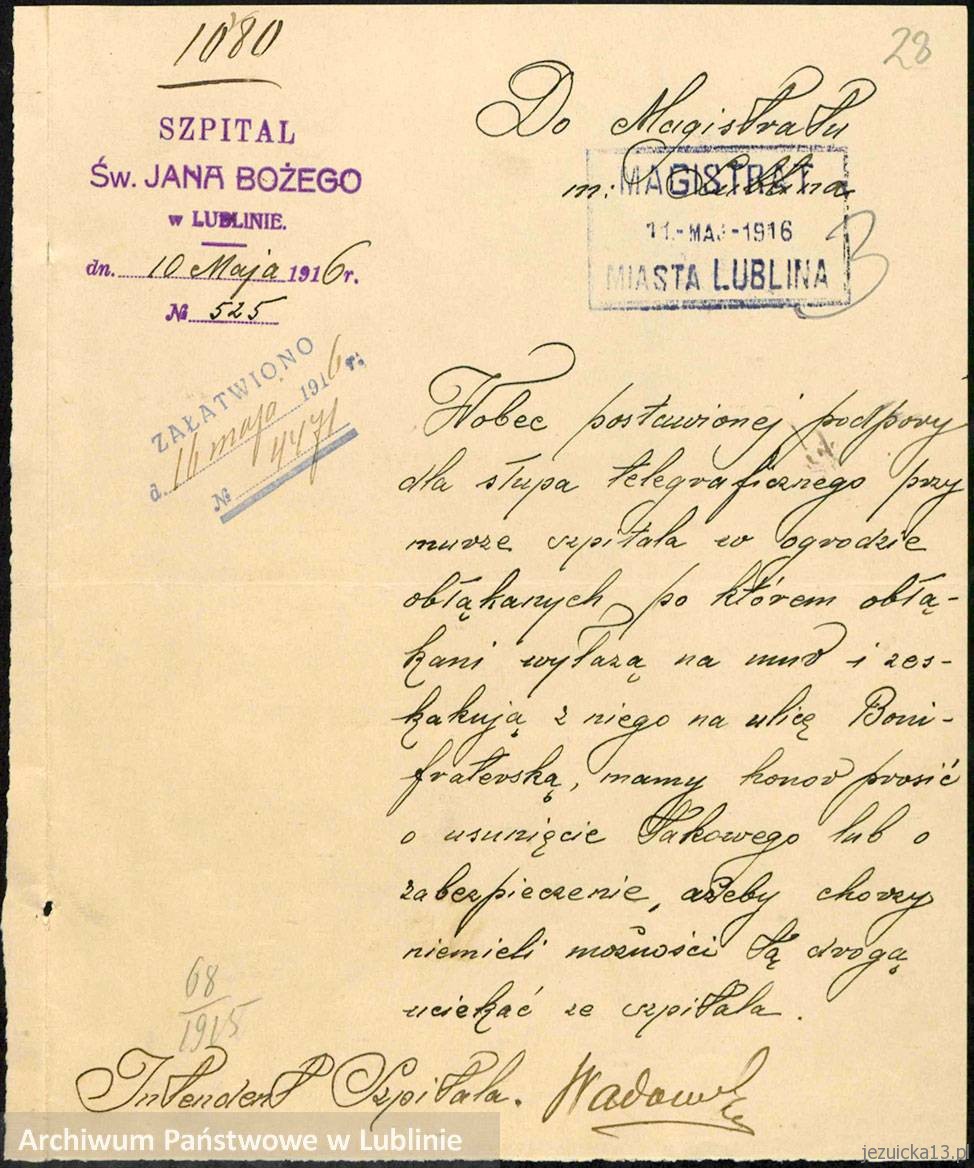 1080
28
SZPITAL
Św. JANA BOŻEGO
w LUBLINIE.
dn. 10 Maja 1916 r.
№ 525
ZAŁATWIONO
d. 16 maja 1916 r.
№ 4471
Do Magistratu
m. Lublina
MAGISTRAT
11 - MAJ - 1916
MIASTA LUBLINA
3
Wobec postawionej podpory
dla słupa telegraficznego przy
murze szpitala w ogrodzie
obłąkanych, po którem obłą-
kani wyłażą na mur i zes-
kakują z niego na ulicę Boni-
fraterską, mamy honor prosić
o usunięcie takowego lub o
zabezpieczenie, ażeby chorzy
niemieli możności tą drogą
uciekać ze szpitala.
68
1915
Intendent Szpitala.
Archiwum Państwowe w Lublinie
jezuicka13.pl